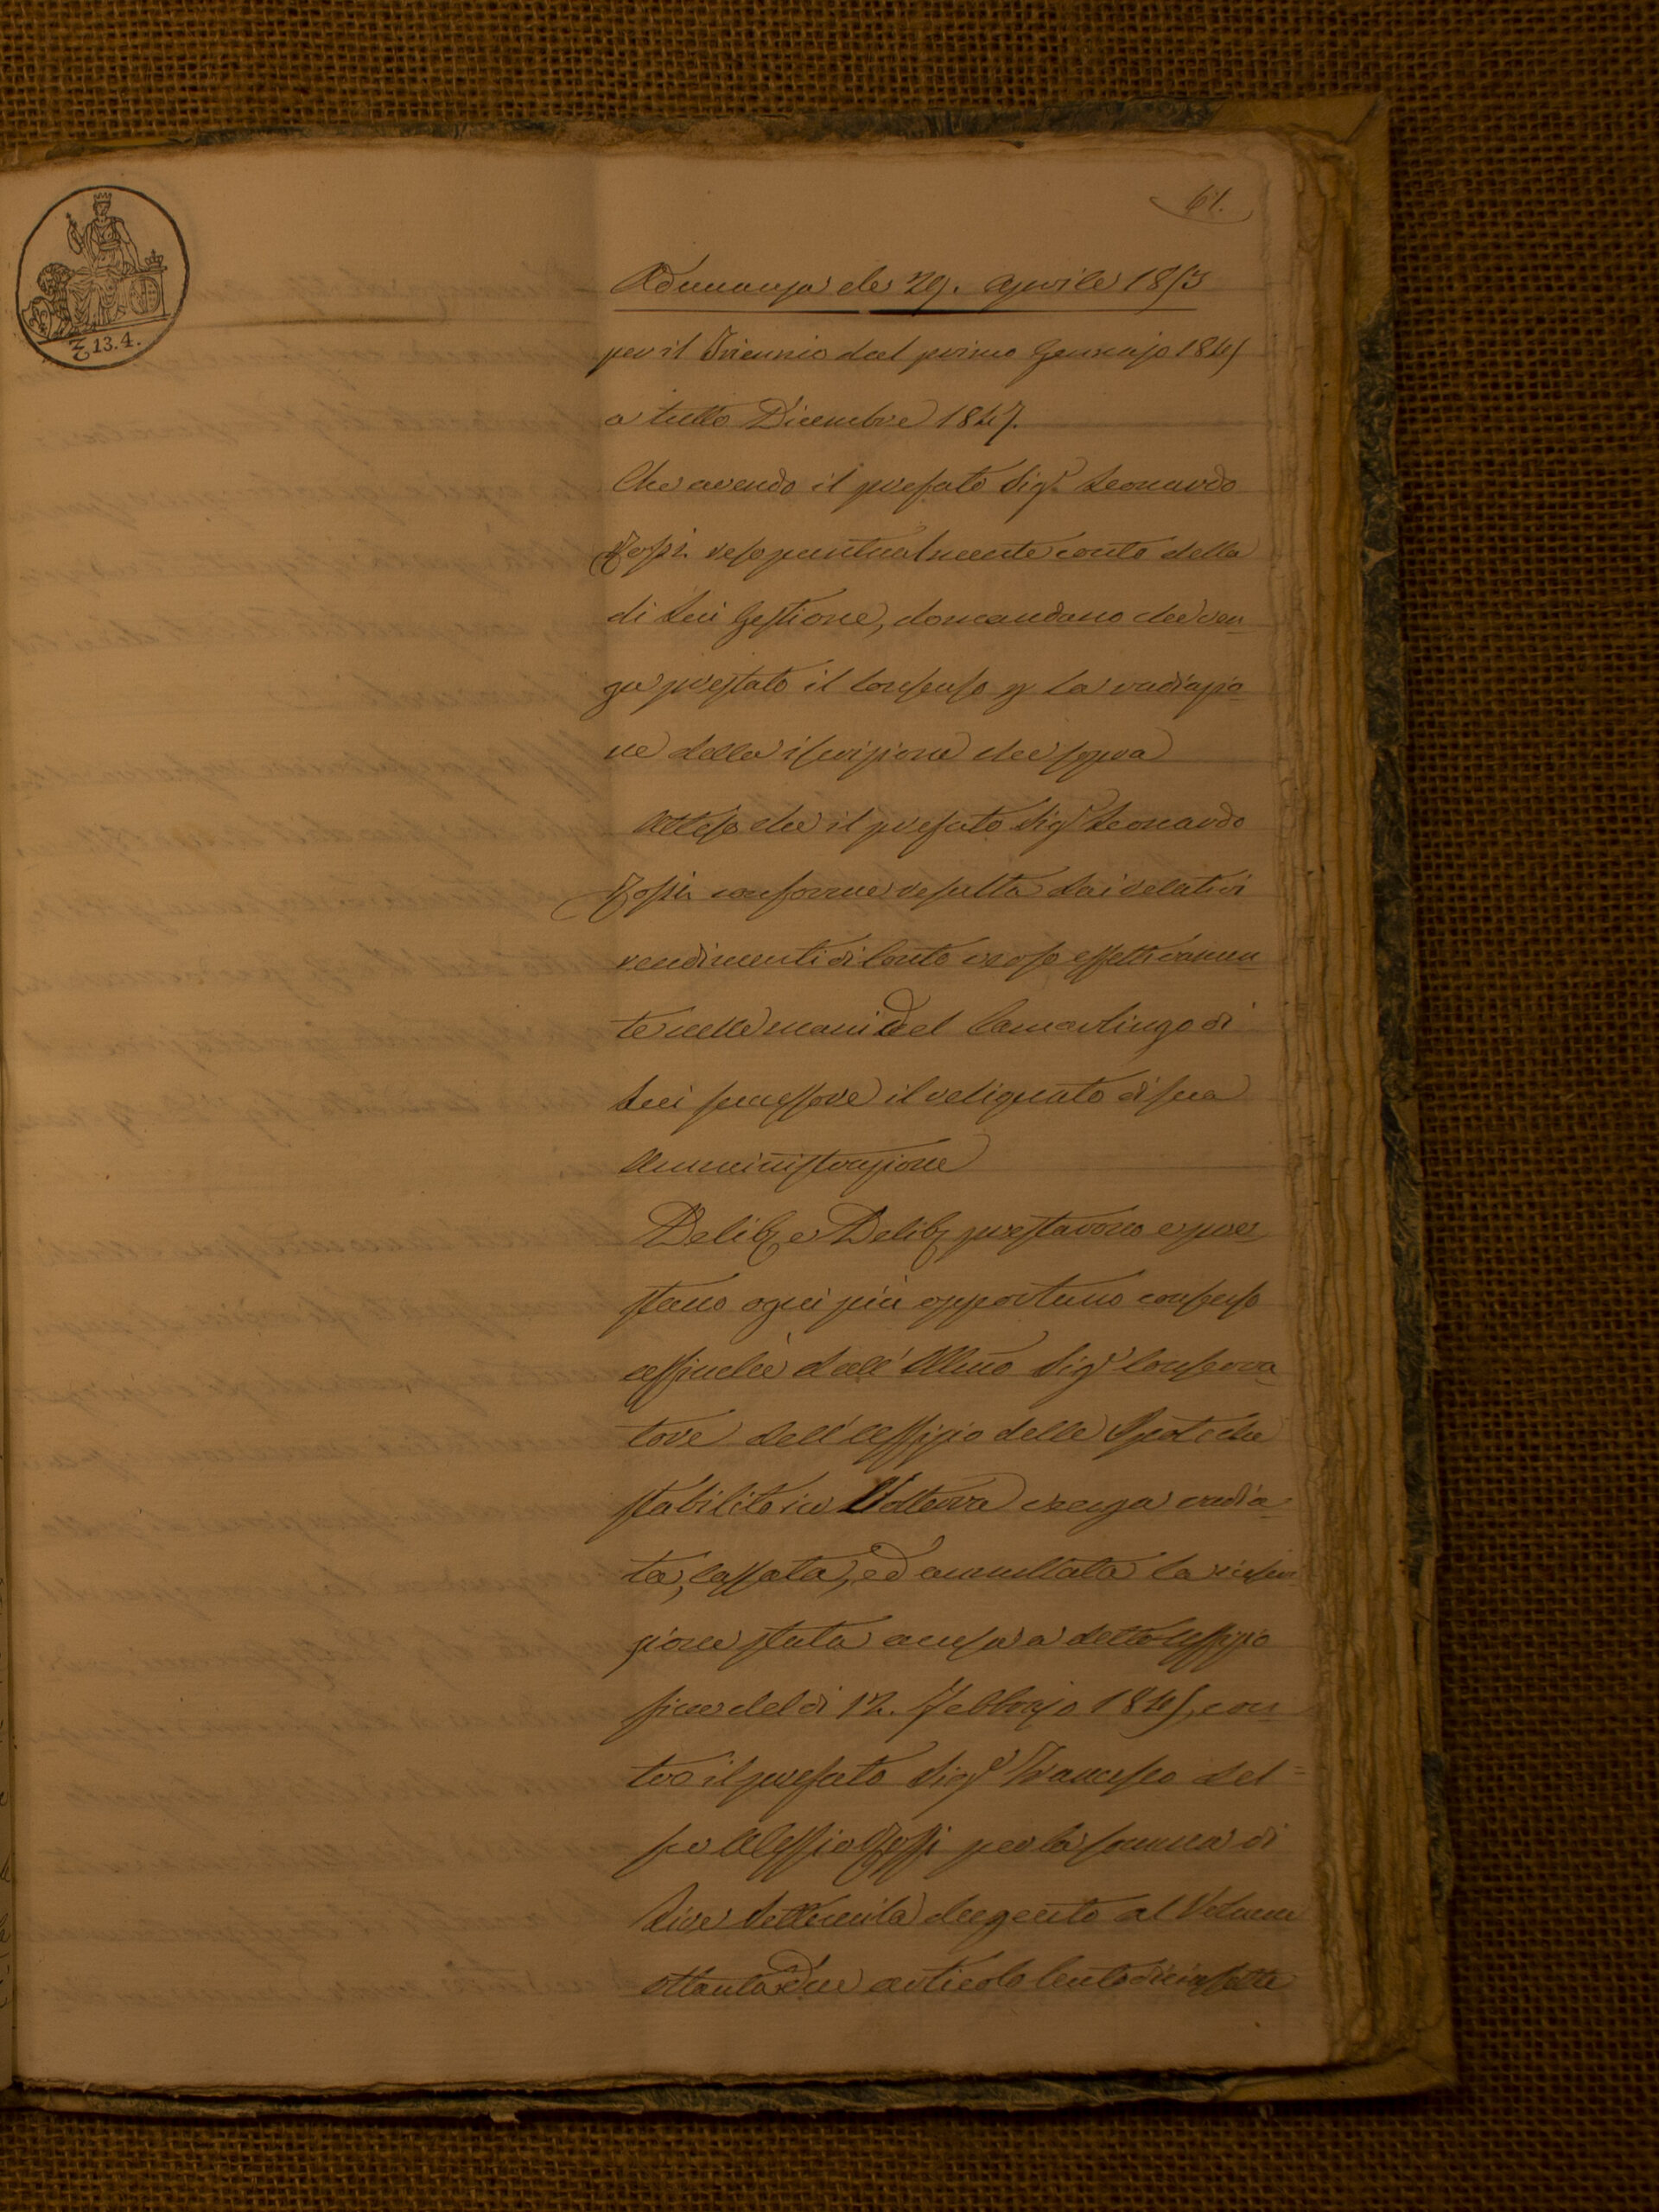 61.
Adunanza de 29. Aprile 1853
per il Triennio dal primo Gennajo 1845
a tutto Dicembre 1847.
Che avendo il prefato Sigr. Leonardo
Rossi reso puntualmente conto della
di Lui Gestione, domandano che ven-
ga prestato il Consenso p la radiazio-
ne della iscrizione che sopra
Atteso che il prefato Sigr. Leonardo
Rossi conforme resulta dai relativi
rendimenti di Conto verso effettivamen-
te nelle mani del Camarlingo di
Lui successore il reliquato di sua
Amministrazione
Delib. e Delib. prestarono e pre-
stano ogni più opportuno consenso
affinchè dall' Illmo Sigr. Conserva-
tore dell' Uffizio delle Ipoteche
stabilito in Volterra venga radia-
ta, cassata, ed annullata la iscri-
zione stata accesa a detto Uffizio
fino del di 12. Febbrajo 1845, con-
tro il prefato Sigr. Francesco del
fu Alessio Rossi per la somma di
Lire Settemila dugento al Volume
ottantadue articolo Centodiciassette
₤ 13.4.